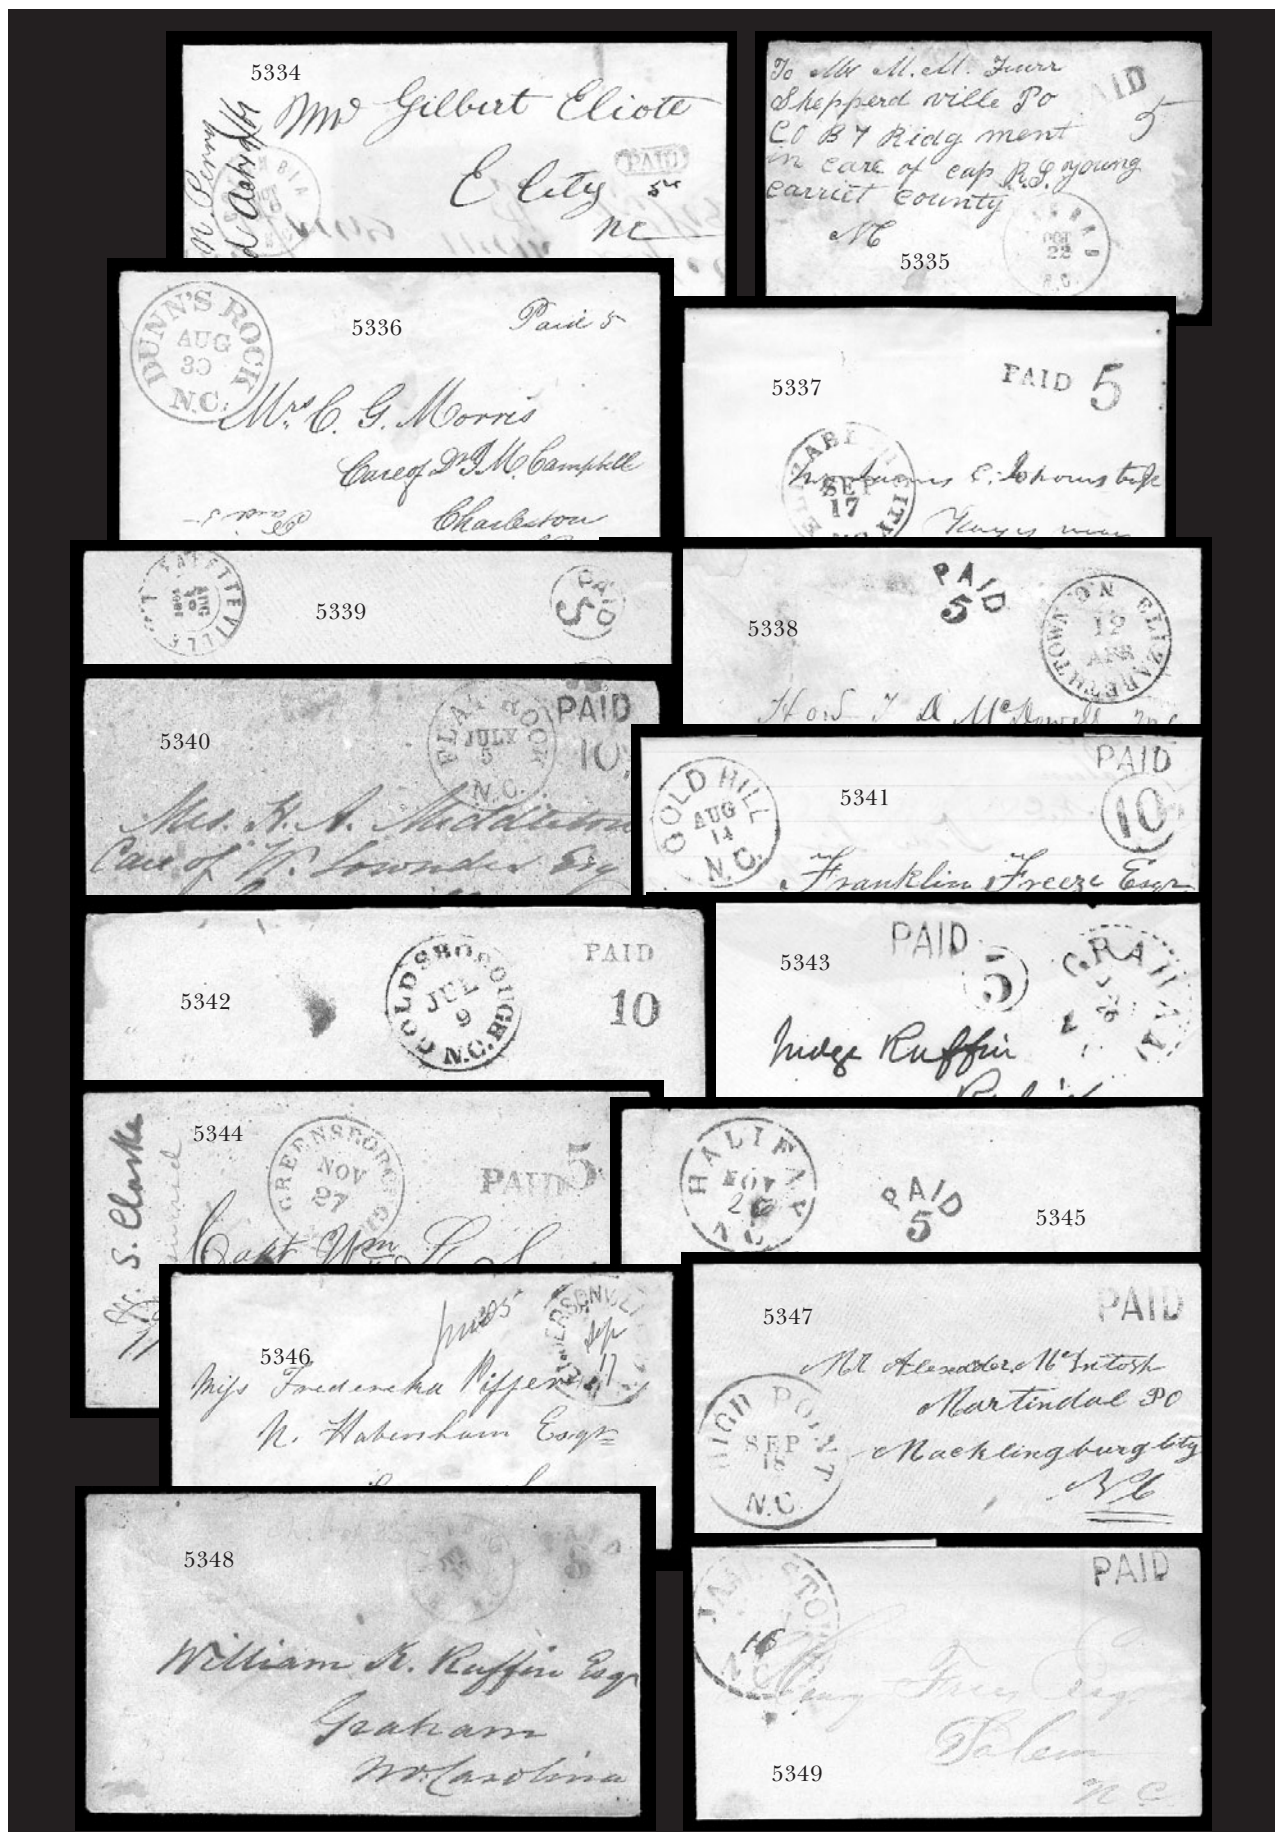 5334
Gilbert Eliote
E City
NC
PAID
5
To Mr M. M. Furr
Shepperd ville Po
CO B 7 Ridg ment
in care of cap R.S. young
carriet county
NC
PAID
5
OCT
22
N.C.
5335
DUNN'S ROCK
AUG
30
N.C.
5336
Paid 5
Mrs C. G. Morris
Care of Dr J M. Campbell
Charleston
Paid 5
5337
PAID 5
ELIZABETH CITY
SEP
17
5339
FAYETTEVILLE
AUG
1861
PAID
5
5338
PAID
5
ELIZABETHTOWN N.C.
12
5340
FLAT ROCK
JULY
5
N.C.
PAID
10
Mrs. H. A. Middleton
Care of W. Lowndes Esq
5341
GOLD HILL
AUG
14
N.C.
PAID
10
Franklin Freeze Esqr
5342
GOLDSBOROUGH N.C.
JUL
9
PAID
10
5343
PAID
5
GRAHAM
Judge Ruffin
5344
W. S. Clarke
GREENSBOROUGH
NOV
27
PAID 5
Capt Wm
HALIFAX
NOV
N C
PAID
5
5345
5346
HENDERSONVILLE
Sep
17
Miss Frederika
N. Habersham Esqr
5347
PAID
Mr Alexander McIntosh
Martindal PO
Macklingburg City
NC
HIGH POINT
SEP
18
N.C.
5348
William K. Ruffin Esqr
Graham
No. Carolina
JAMESTOWN
16
N.C.
PAID
Esq.
Salem
N C
5349